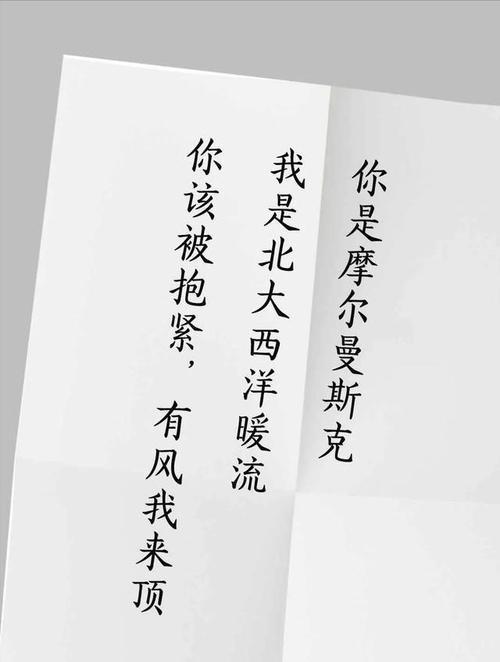 你是摩尔曼斯克
我是北大西洋暖流
你该被抱紧，有风我来顶